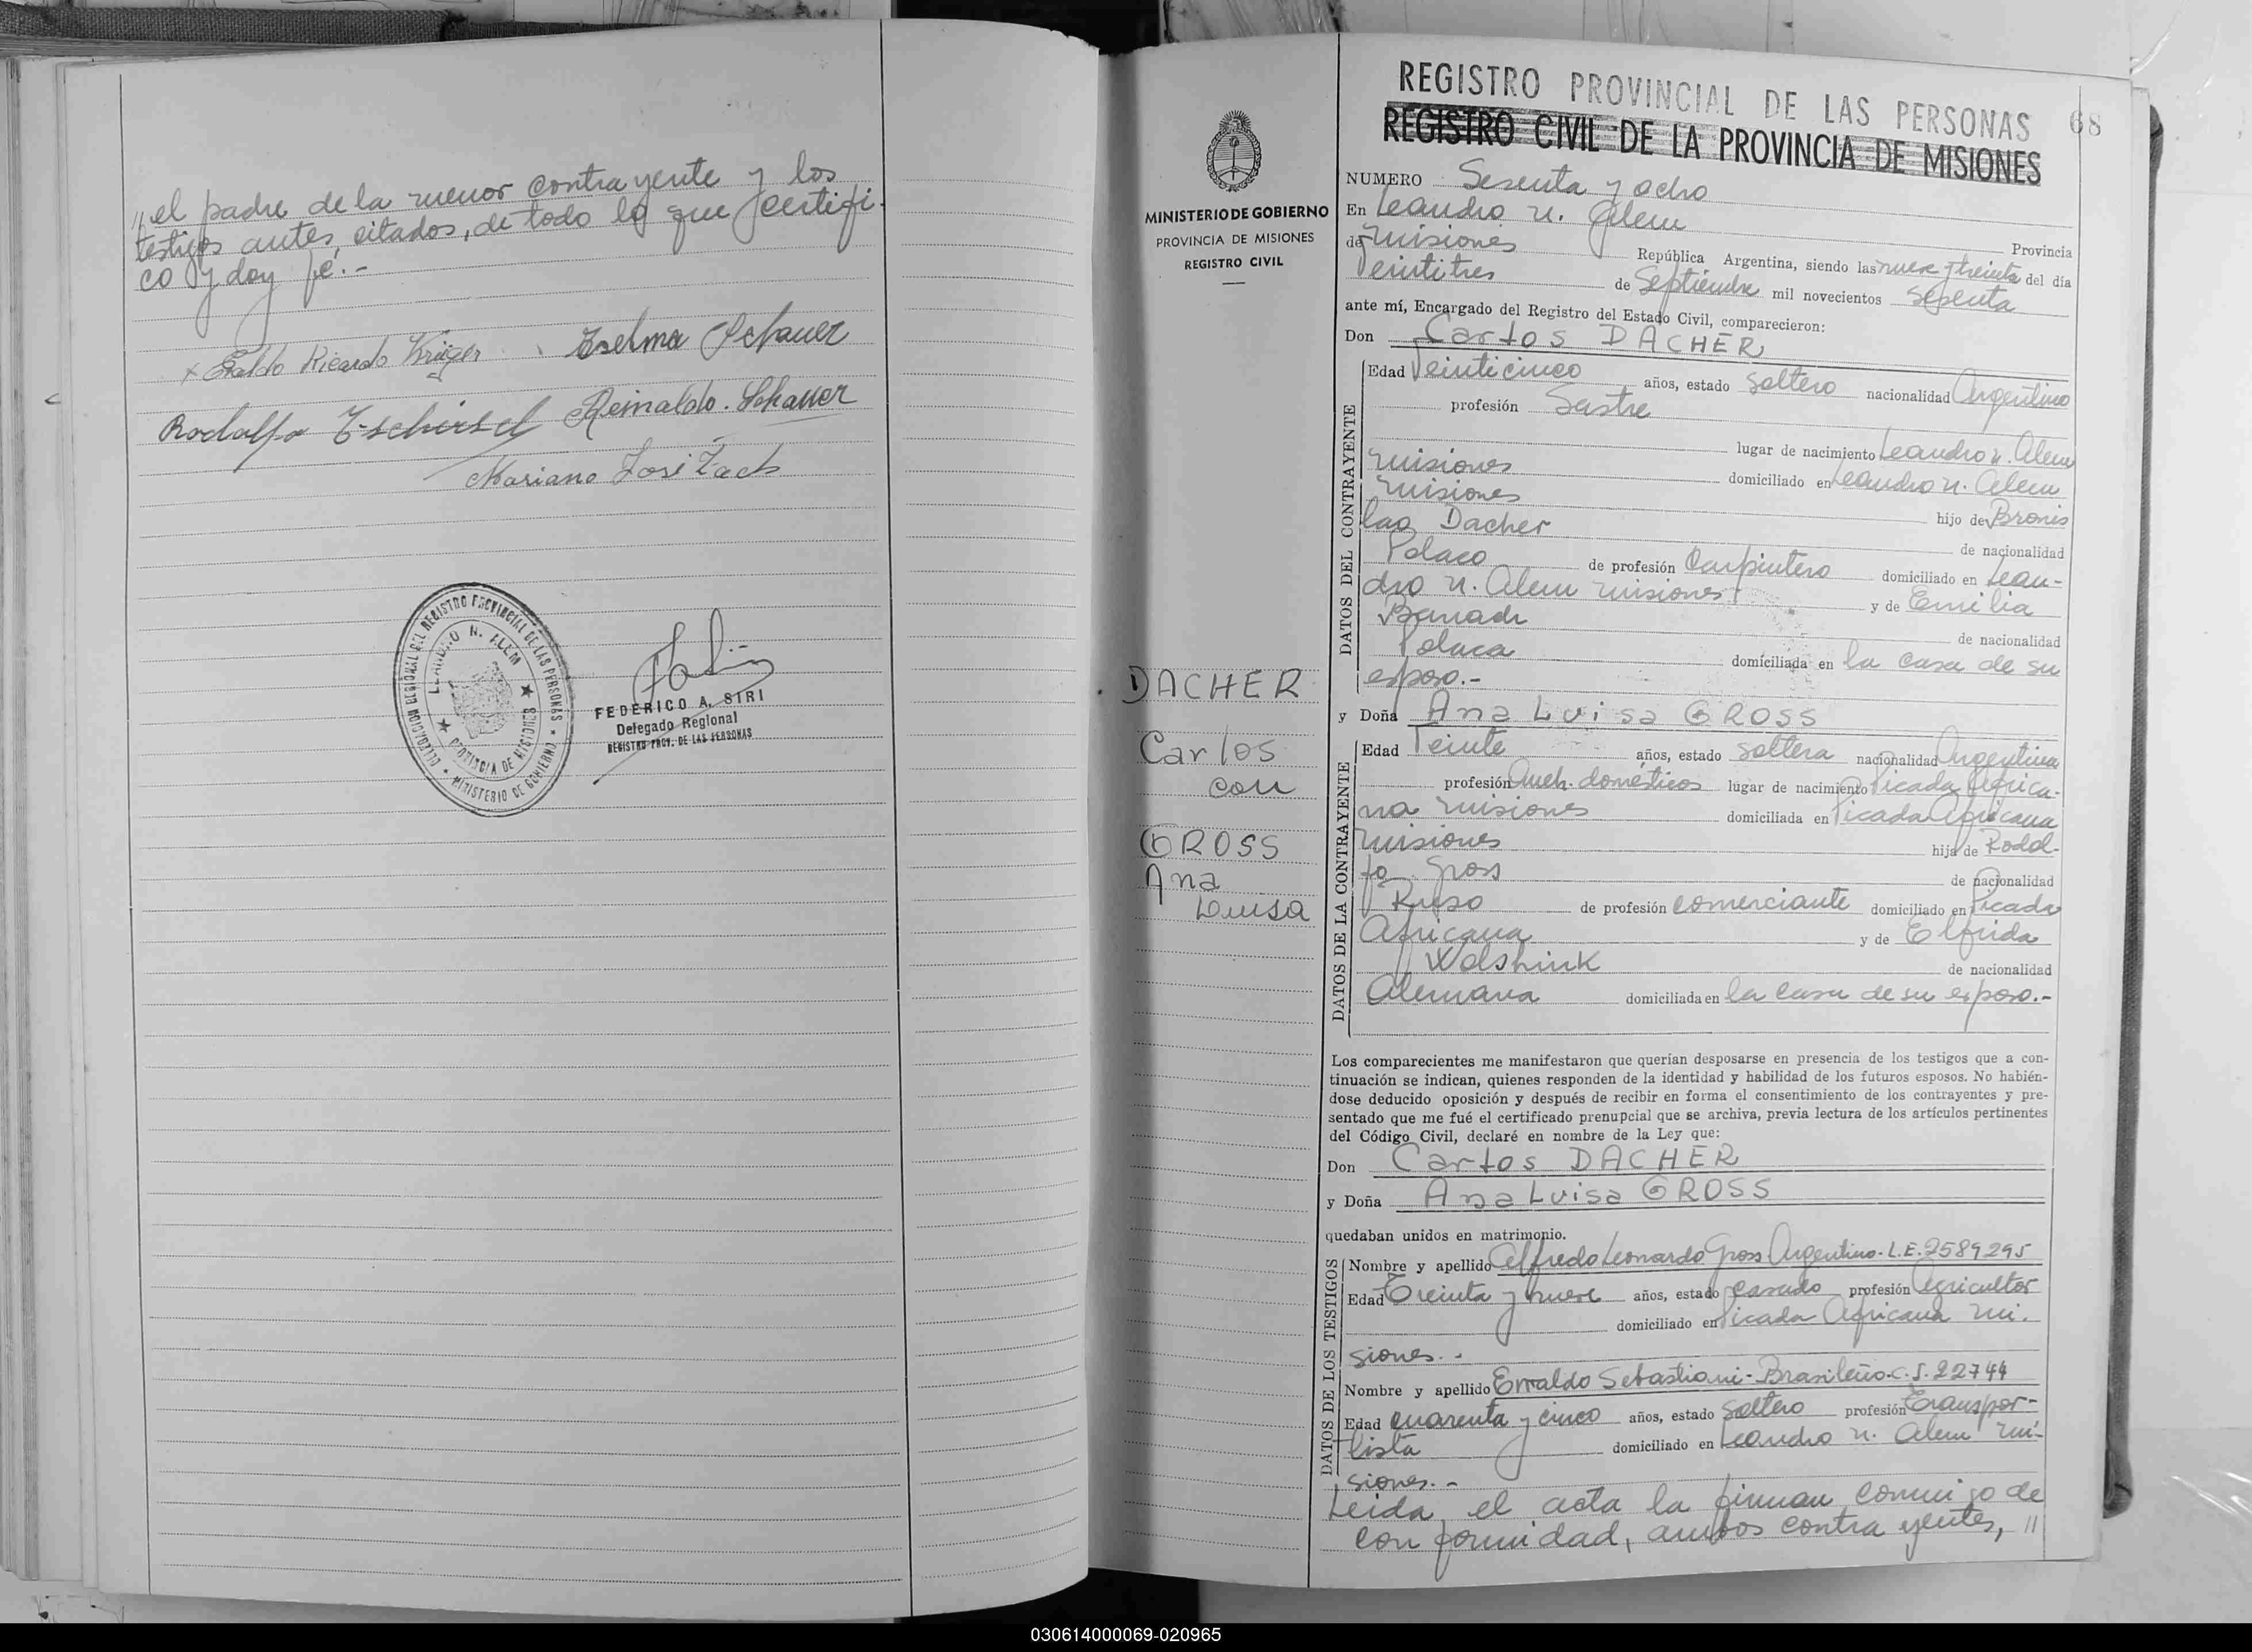 " el padre de la menor contrayente y los
testigos antes citados, de todo lo que certifi-
co y doy fé.-
Ricardo Krüger Zselma Schauer
Rodolfo Reinaldo. Schauer
Mariano José Zach
DELEGACION REGIONAL DEL REGISTRO PROVINCIAL DE LAS PERSONAS * MINISTERIO DE GOBIERNO *
LEANDRO N. ALEM
PROVINCIA DE MISIONES
FEDERICO A. SIRI
Delegado Regional
REGISTRO PROV. DE LAS PERSONAS
MINISTERIO DE GOBIERNO
PROVINCIA DE MISIONES
REGISTRO CIVIL
DACHER
Carlos
con
GROSS
Ana
Luisa
REGISTRO PROVINCIAL DE LAS PERSONAS 68
REGISTRO CIVIL DE LA PROVINCIA DE MISIONES
NUMERO Sesenta y ocho
En Leandro N. Alem
Provincia
de Misiones República Argentina, siendo las nueve y treinta del día
Veintitres de Septiembre mil novecientos sesenta
ante mí, Encargado del Registro del Estado Civil, comparecieron:
Don Carlos DACHER
DATOS DEL CONTRAYENTE
Edad Veinticinco años, estado soltero nacionalidad Argentino
profesión Sastre
lugar de nacimiento Leandro N. Alem
Misiones domiciliado en Leandro N. Alem
Misiones hijo de Bronis
lao Dacher de nacionalidad
Polaco de profesión Carpintero domiciliado en Lean-
dro N. Alem Misiones y de Emilia
de nacionalidad
Polaca domiciliada en la casa de su
esposo.-
y Doña Ana Luisa GROSS
DATOS DE LA CONTRAYENTE
Edad Veinte años, estado soltera nacionalidad Argentina
profesión Queh. domésticos lugar de nacimiento Picada Africa-
na Misiones domiciliada en Picada Africana
Misiones hija de Rodol-
fo Gross de nacionalidad
Ruso de profesión comerciante domiciliado en Picada
Africana y de Elfrida
Wolshink de nacionalidad
Alemana domiciliada en la casa de su esposo.-
Los comparecientes me manifestaron que querían desposarse en presencia de los testigos que a con-
tinuación se indican, quienes responden de la identidad y habilidad de los futuros esposos. No habién-
dose deducido oposición y después de recibir en forma el consentimiento de los contrayentes y pre-
sentado que me fué el certificado prenupcial que se archiva, previa lectura de los artículos pertinentes
del Código Civil, declaré en nombre de la Ley que:
Don Carlos DACHER
y Doña Ana Luisa GROSS
quedaban unidos en matrimonio.
DATOS DE LOS TESTIGOS
Nombre y apellido Alfredo Leonardo Gross Argentino-L.E. 2589295
Edad Treinta y nueve años, estado casado profesión Agricultor
domiciliado en Picada Africana Mi-
siones.-
Nombre y apellido Erraldo Sebastiani-Brasileño-C.I. 22744
Edad cuarenta y cinco años, estado soltero profesión Transpor-
tista domiciliado en Leandro N. Alem Mi-
siones.-
Leida el acta la firman conmigo de
conformidad, ambos contrayentes, "
030614000069-020965